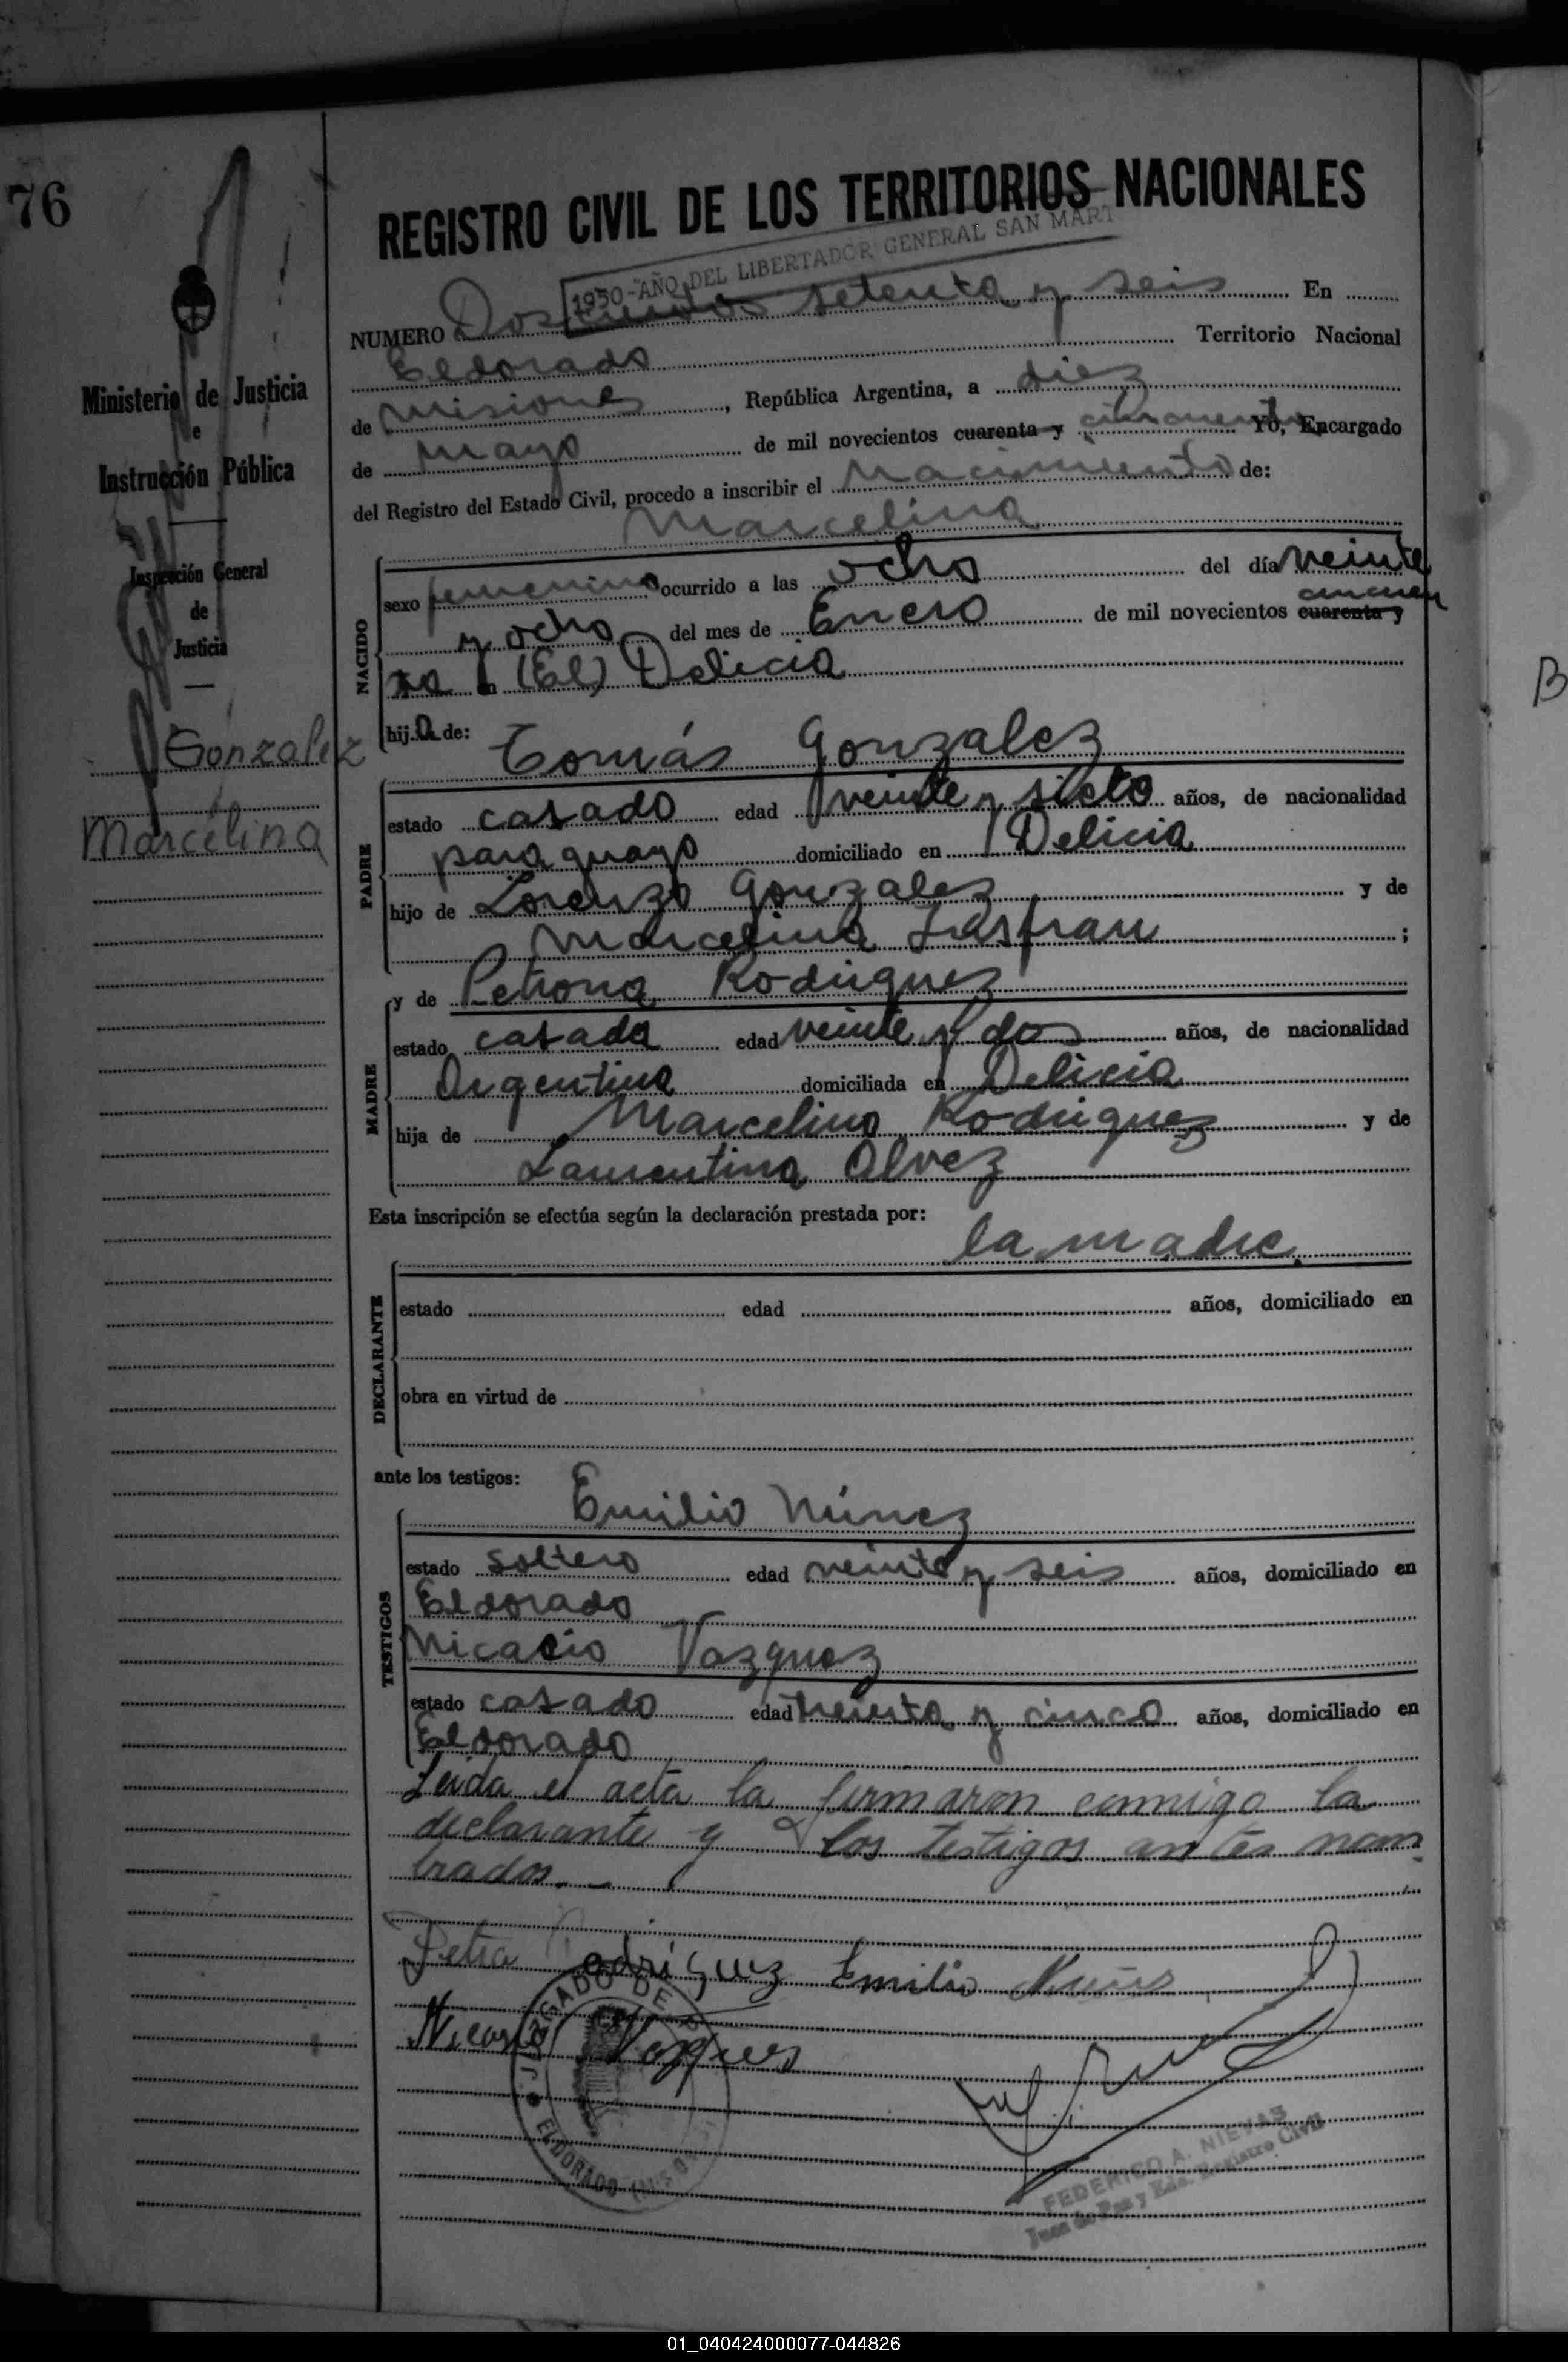 76
REGISTRO CIVIL DE LOS TERRITORIOS NACIONALES
1950-AÑO DEL LIBERTADOR GENERAL SAN MART
NUMERO Doscientos setenta y seis En
Eldorado Territorio Nacional
de Misiones, República Argentina, a diez
de mayo de mil novecientos cuarenta y cincuenta Yo, Encargado
del Registro del Estado Civil, procedo a inscribir el nacimiento de:
Marcelina
Ministerio de Justicia
e
Instrucción Pública
Inspección General
de
Justicia
Gonzalez
Marcelina
NACIDO
sexo femenino ocurrido a las ocho del día veinte
y ocho del mes de Enero de mil novecientos cuarenta y cincuen
ta en (El) Delicia
hija de: Tomás Gonzalez
PADRE
estado casado edad veinte y siete años, de nacionalidad
paraguayo domiciliado en Delicia
hijo de Lorenzo Gonzalez y de
Marcelina ;
y de Petrona Rodriguez
MADRE
estado casada edad veinte y dos años, de nacionalidad
Argentina domiciliada en Delicia
hija de Marcelino Rodriguez y de
Laurentina Alvez
Esta inscripción se efectúa según la declaración prestada por:
la madre
DECLARANTE
estado edad años, domiciliado en
obra en virtud de
ante los testigos:
Emilio Núnez
TESTIGOS
estado soltero edad veinte y seis años, domiciliado en
Eldorado
Nicasio Vazquez
estado casado edad treinta y cinco años, domiciliado en
Eldorado
Leida el acta la firmaron conmigo la
declarante y los testigos antes nom
brados.-
Petra Rodriguez Emilio Nuñes
Nicasio Vazques
JUZGADO DE
ELDORADO
FEDERICO A. NIEVAS
Juez de Paz y Edo. Registro Civil
01_040424000077-044826